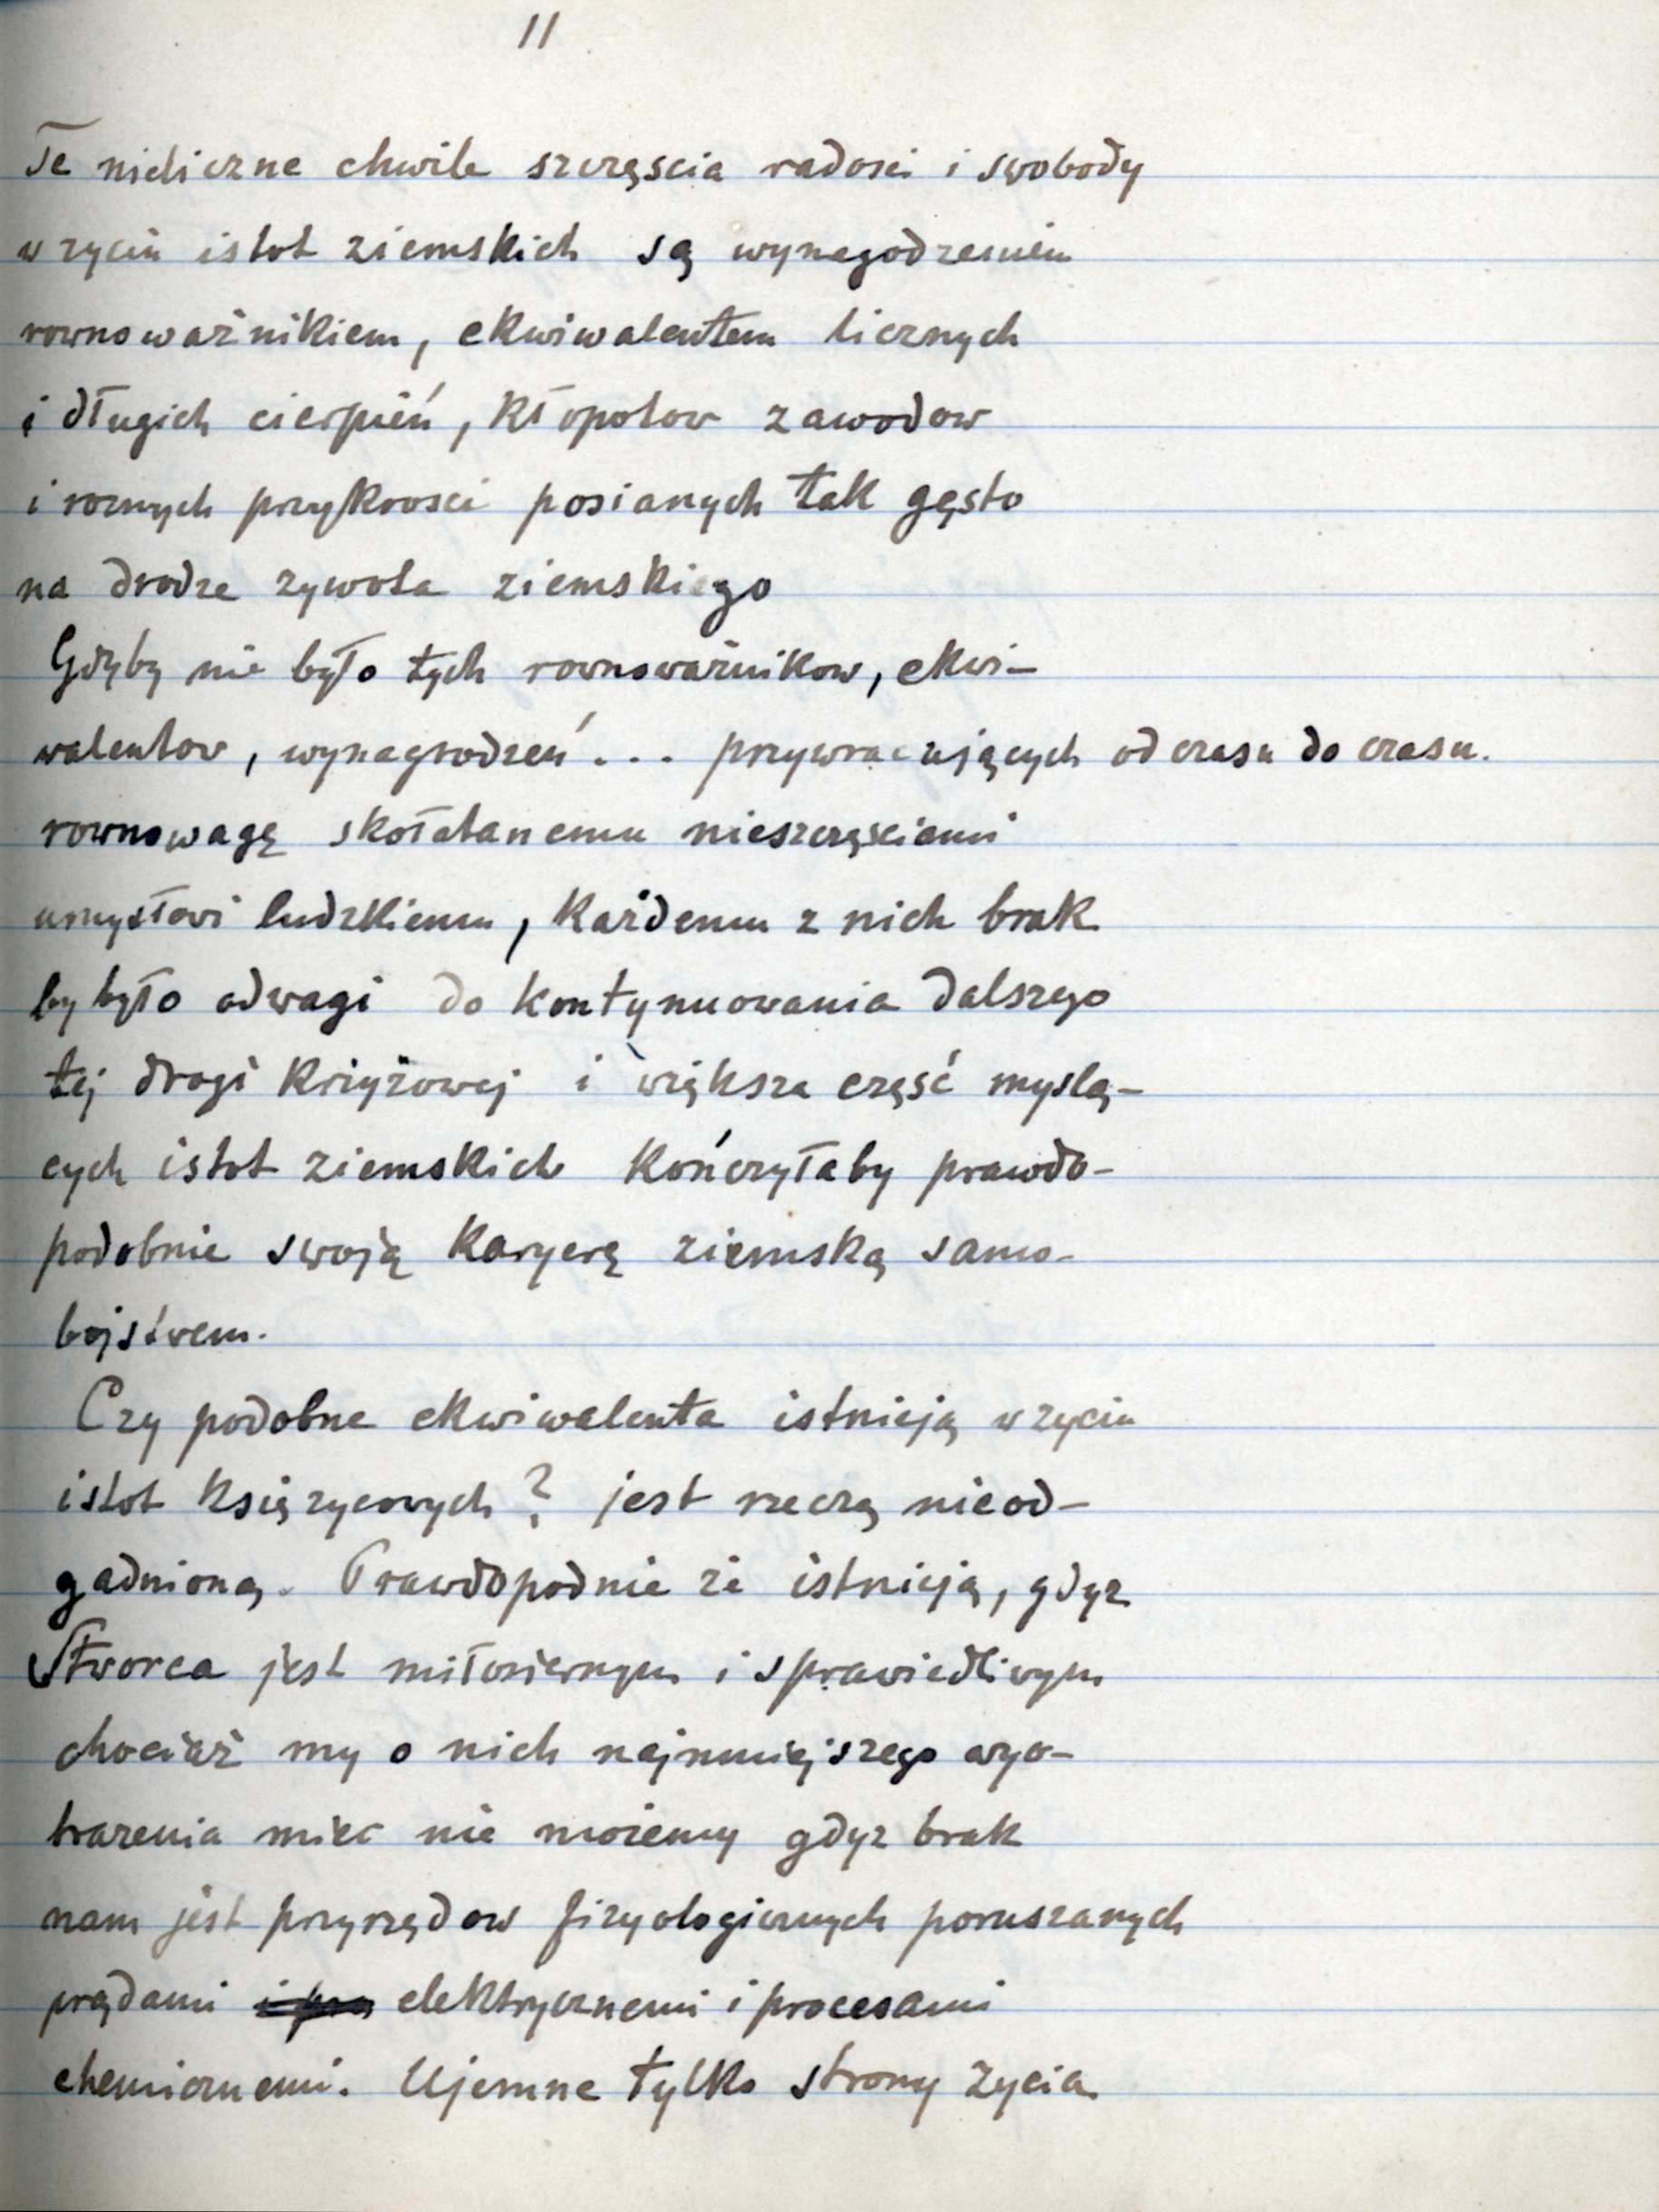 11
Te nieliczne chwile szczęscia radosci i swobody
w zyciu istot ziemskich są wynagodzeniem
rownoważnikiem, ekwiwalentem licznych
i długich cierpień, kłopotow zawodow
i roznych przykrosci posianych tak gęsto
na drodze zywota ziemskiego
Gdyby nie było tych rownoważnikow, ekwi-
walentow, wynagrodzeń... przywracających od czasu do czasu.
rownowagę skołatanemu nieszczęsciami
umysłowi ludzkiemu, każdemu z nich brak
by było odwagi do kontynuowania dalszego
tej drogi krzyżowej i większa część myslą-
cych istot ziemskich kończyłaby prawdo-
podobnie swoją karyerę ziemską samo-
bojstwem.
Czy podobne ekwiwalenta istnieją w zyciu
istot księzycowych? jest rzeczą nieod-
gadnioną. Prawdopodnie że istnieją, gdyz
Stworca jest miłosiernym i sprawiedliwym
chociaż my o nich najmniejszego wyo-
brazenia miec nie możemy gdyz brak
nam jest przyrzędow fizyologicznych poruszanych
prądami elektrycznemi i procesami
chemicznemi. Ujemne tylko strony zycia